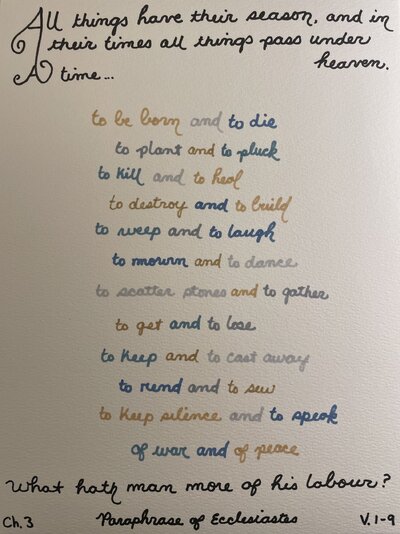 All things have their season, and in
their times all things pass under
heaven.
A time...
to be born and to die
to plant and to pluck
to kill and to heal
to destroy and to build
to weep and to laugh
to mourn and to dance
to scatter stones and to gather
to get and to lose
to keep and to cast away
to rend and to sew
to keep silence and to speak
of war and of peace
What hath man more of his labour?
Ch. 3 Paraphrase of Ecclesiastes V. 1-9